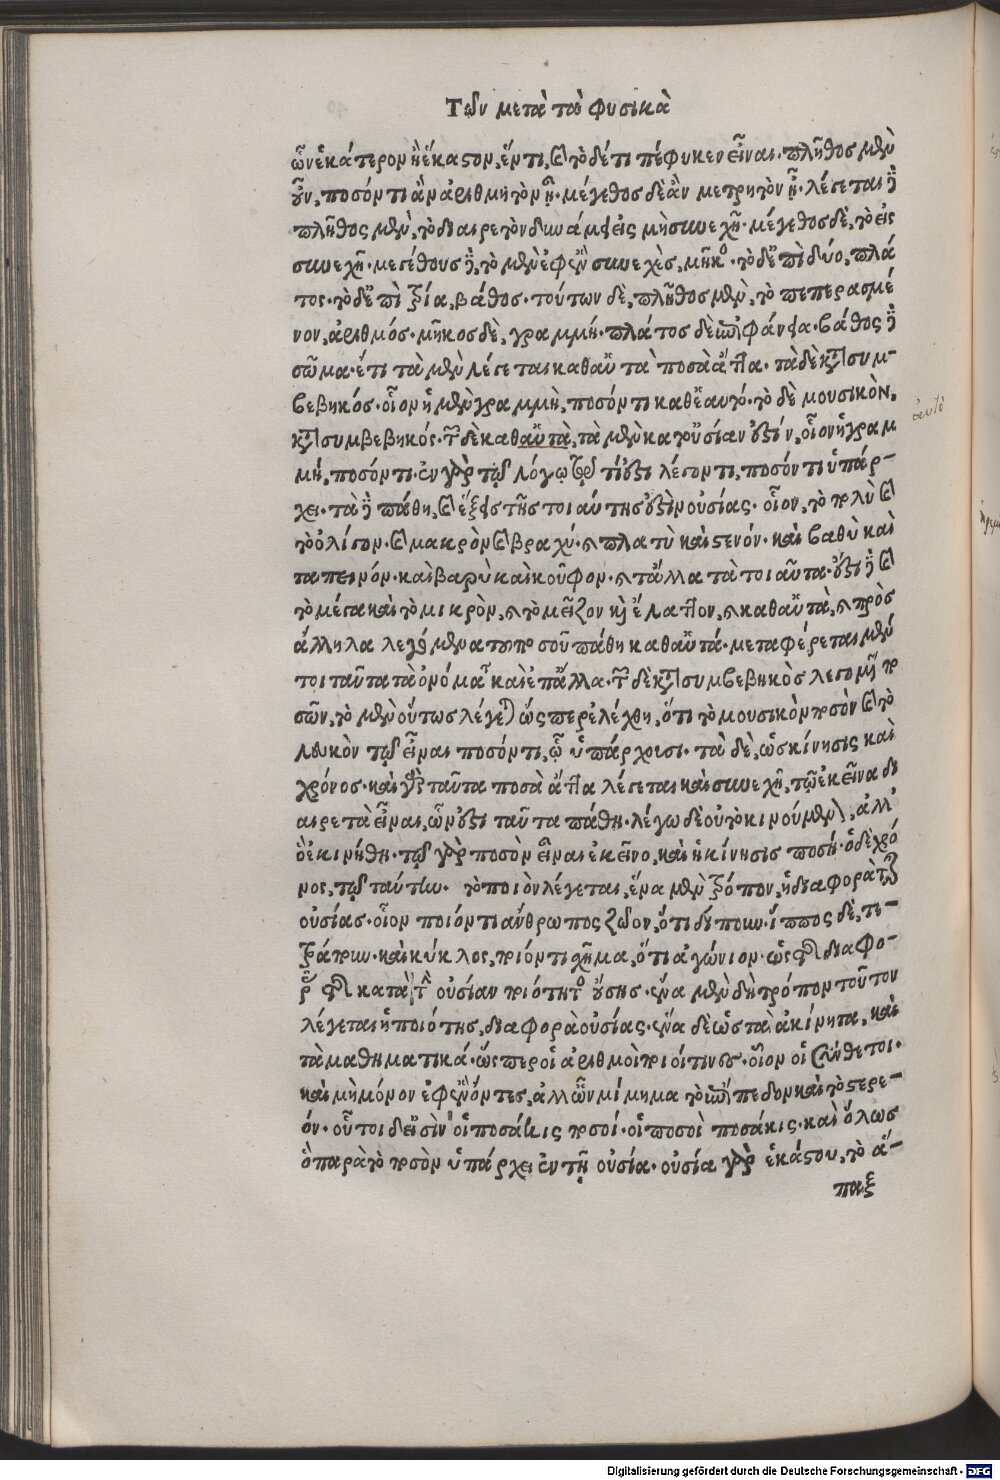 Τῶν μετὰ τὰ φυσικὰ
ὧν ἑκάτερον ἢ ἕκαστον, ἕν τι, καὶ τὸ δέ τι πέφυκεν εἶναι. πλῆθος μὲν
οὖν, ποσόν τι ἂν ἀριθμητὸν ᾖ. μέγεθος δὲ ἂν μετρητὸν ᾖ. λέγεται δὲ
πλῆθος μὲν, τὸ διαιρετὸν δυνάμει εἰς μὴ συνεχῆ. μέγεθος δὲ, τὸ εἰς
συνεχῆ. μεγέθους δὲ, τὸ μὲν ἐφ' ἓν συνεχὲς, μῆκος. τὸ δ' ἐπὶ δύο, πλά
τος. τὸ δ' ἐπὶ τρία, βάθος. τούτων δὲ, πλῆθος μὲν, τὸ πεπερασμέ
νον, ἀριθμός. μῆκος δὲ, γραμμή. πλάτος δὲ ἐπιφάνεια. βάθος δὲ
σῶμα. ἔτι τὰ μὲν λέγεται καθ' αὑτὰ ποσὰ ἄττα. τὰ δὲ κατὰ συμ-
βεβηκός. οἷον ἡ μὲν γραμμὴ, ποσόν τι καθ' ἑαυτό. τὸ δὲ μουσικὸν,
αὐτὸ
κατὰ συμβεβηκός. τῶν δὲ καθ' αὑτὰ, τὰ μὲν κατ' οὐσίαν ἐστὶν, οἷον ἡ γραμ
μή, ποσόν τι. ἐν γὰρ τῷ λόγῳ τῷ τί ἐστι λέγοντι, ποσόν τι ὑπάρ-
χει. τὰ δὲ πάθη, καὶ ἕξεις τῆς τοιαύτης ἐστὶν οὐσίας. οἷον, τὸ πολὺ καὶ
τὸ ὀλίγον. καὶ μακρὸν καὶ βραχύ. καὶ πλατὺ καὶ στενόν. καὶ βαθὺ καὶ
ταπεινόν. καὶ βαρὺ καὶ κοῦφον. καὶ τἄλλα τὰ τοιαῦτα. ἔστι δὲ καὶ
τὸ μέγα καὶ τὸ μικρὸν, καὶ τὸ μεῖζον καὶ ἔλαττον, καὶ καθ' αὑτὰ, καὶ πρὸς
ἄλληλα λεγόμενα τοῦ ποσοῦ πάθη καθ' αὑτά. μεταφέρεται μέν
τοι ταῦτα τὰ ὀνόματα καὶ ἐπ' ἄλλα. τῶν δὲ κατὰ συμβεβηκὸς λεγομένων πο
σῶν, τὸ μὲν οὕτως λέγεται ὥσπερ ἐλέχθη, ὅτι τὸ μουσικὸν ποσὸν καὶ τὸ
λευκὸν τῷ εἶναι ποσόν τι, ᾧ ὑπάρχουσι. τὰ δὲ, ὡς κίνησις καὶ
χρόνος. καὶ γὰρ ταῦτα ποσὰ ἄττα λέγεται καὶ συνεχῆ, τῷ ἐκεῖνα δι
αιρετὰ εἶναι, ὧν ἐστι ταῦτα πάθη. λέγω δὲ οὐ τὸ κινούμενον, ἀλλ'
ὃ ἐκινήθη. τῷ γὰρ ποσὸν εἶναι ἐκεῖνο, καὶ ἡ κίνησις ποσή. ὁ δὲ χρό
νος, τῷ ταύτην. τὸ ποιὸν λέγεται, ἕνα μὲν τρόπον, ἡ διαφορὰ τῆς
οὐσίας. οἷον ποιόν τι ἄνθρωπος ζῷον, ὅτι δίπουν. ἵππος δὲ, τε-
τράπουν. καὶ κύκλος, ποιόν τι σχῆμα, ὅτι ἀγώνιον. ὡς τῆς διαφο-
ρᾶς τῆς κατὰ τὴν οὐσίαν ποιότητος οὔσης. ἕνα μὲν δὴ τρόπον τοῦτον
λέγεται ἡ ποιότης, διαφορὰ οὐσίας. ἕνα δὲ ὡς τὰ ἀκίνητα, καὶ
τὰ μαθηματικά. ὥσπερ οἱ ἀριθμοὶ ποιοί τινες. οἷον οἱ σύνθετοι.
καὶ μὴ μόνον ἐφ' ἓν ὄντες, ἀλλ' ὧν μίμημα τὸ ἐπίπεδον καὶ τὸ στερε-
όν. οὗτοι δ' εἰσὶν οἱ ποσάκις ποσοί. οἱ ποσοὶ ποσάκις. καὶ ὅλως
ὃ παρὰ τὸ ποσὸν ὑπάρχει ἐν τῇ οὐσίᾳ. οὐσία γὰρ ἑκάστου, τὸ ἅ-
παξ
Digitalisierung gefördert durch die Deutsche Forschungsgemeinschaft - DFG